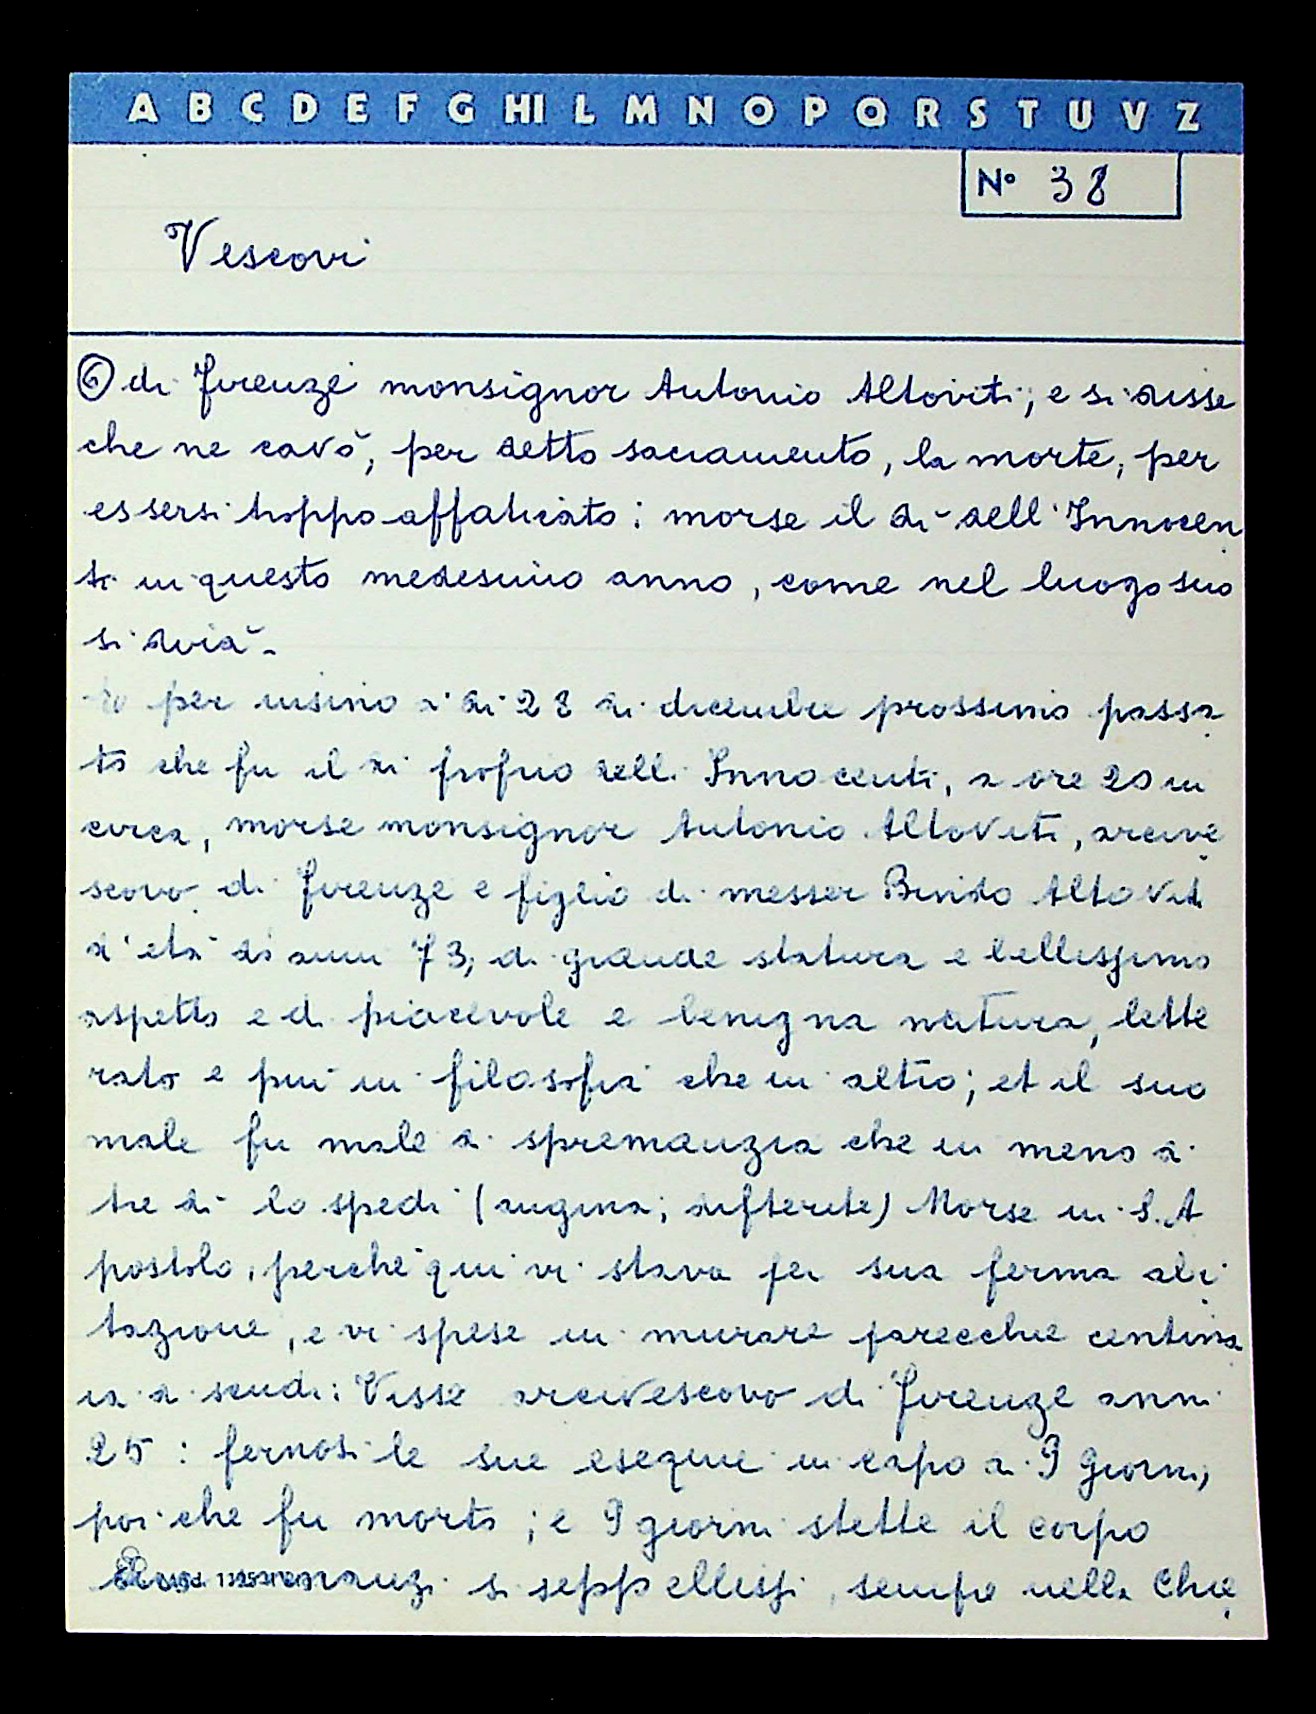 A B C D E F G HI L M N O P Q R S T U V Z
N° 38
Vescovi
⑥ di Firenze monsignor Antonio Altoviti; e si disse
che ne cavò, per detto sacramento, la morte, per
essersi troppo affaticato: morse il dì dell'Innocen
ti in questo medesimo anno, come nel luogo suo
si dirà.
per insino a' dì 28 di dicembre prossimo passa
to che fu il dì proprio delli Innocenti, a ore 20 in
circa, morse monsignor Antonio Altoviti, arcive
scovo di Firenze e figlio di messer Bindo Altoviti
d'età di anni 73, di grande statura e bellissimo
aspetto e di piacevole e benigna natura, lette
rato e più in filosofia che in altro; et il suo
male fu male di spremanzia che in meno di
tre dì lo spedì (angina; difterite) Morse in S. A
postolo, perché qui vi stava per sua ferma abi
tazione, e vi spese in murare parecchie centina
ia di scudi: Visse arcivescovo di Firenze anni
25: fernosi le sue esequie in capo a 9 giorni,
poi che fu morto; e 9 giorni stette il corpo
innanzi si seppellissi, sempre nella Chie